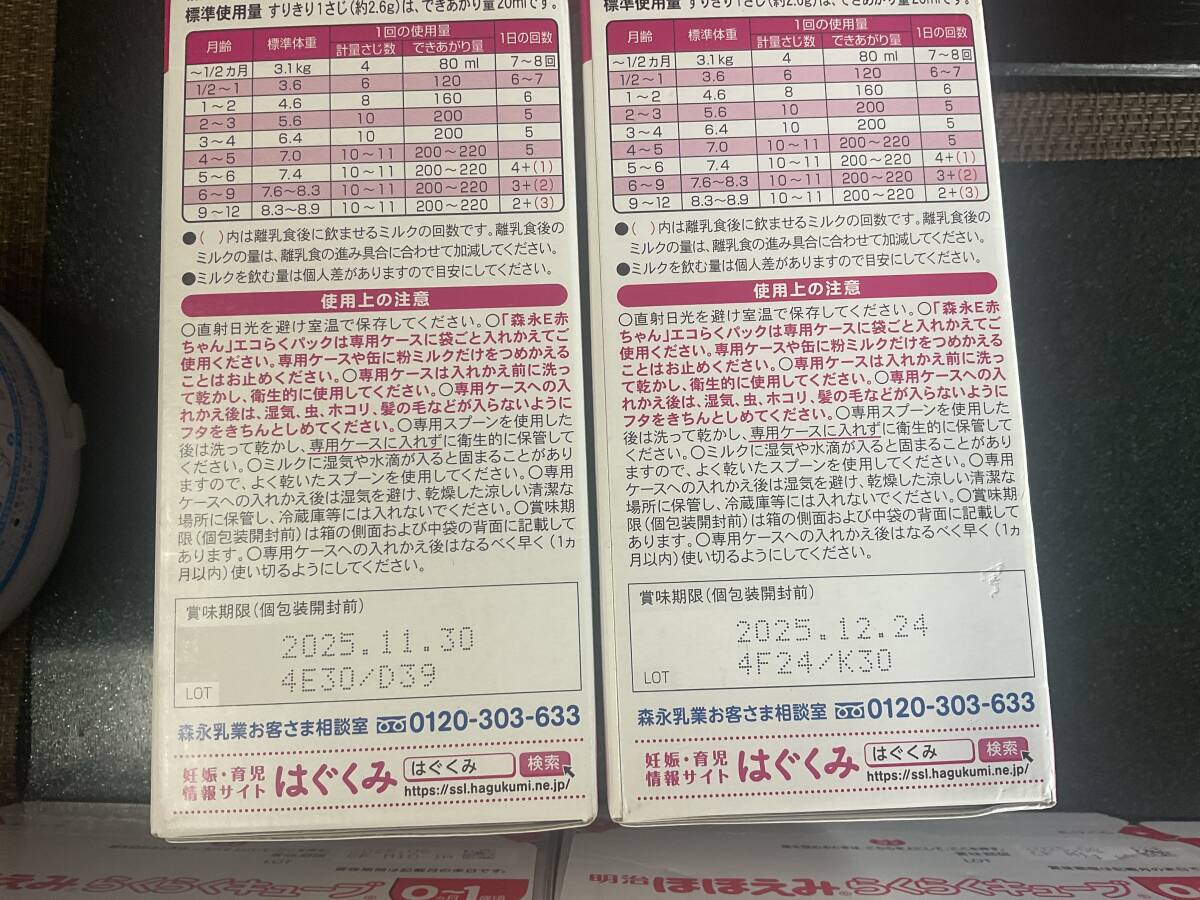 標準使用量 すりきり1さじ(約2.6g)は、できあがり量20mlです。
月齢 標準体重 1回の使用量 1日の回数
計量さじ数 できあがり量
～1/2カ月 3.1kg 4 80 ml 7～8回
1/2～1 3.6 6 120 6～7
1～2 4.6 8 160 6
2～3 5.6 10 200 5
3～4 6.4 10 200 5
4～5 7.0 10～11 200～220 5
5～6 7.4 10～11 200～220 4+(1)
6～9 7.6～8.3 10～11 200～220 3+(2)
9～12 8.3～8.9 10～11 200～220 2+(3)
●( )内は離乳食後に飲ませるミルクの回数です。離乳食後の
ミルクの量は、離乳食の進み具合に合わせて加減してください。
●ミルクを飲む量は個人差がありますので目安にしてください。
使用上の注意
○直射日光を避け室温で保存してください。○「森永E赤
ちゃん」エコらくパックは専用ケースに袋ごと入れかえてご
使用ください。専用ケースや缶に粉ミルクだけをつめかえる
ことはお止めください。○専用ケースは入れかえ前に洗っ
て乾かし、衛生的に使用してください。○専用ケースへの入
れかえ後は、湿気、虫、ホコリ、髪の毛などが入らないように
フタをきちんとしめてください。○専用スプーンを使用した
後は洗って乾かし、専用ケースに入れずに衛生的に保管して
ください。○ミルクに湿気や水滴が入ると固まることがあり
ますので、よく乾いたスプーンを使用してください。○専用
ケースへの入れかえ後は湿気を避け、乾燥した涼しい清潔な
場所に保管し、冷蔵庫等には入れないでください。○賞味期
限(個包装開封前)は箱の側面および中袋の背面に記載して
あります。○専用ケースへの入れかえ後はなるべく早く(1ヵ
月以内)使い切るようにしてください。
賞味期限(個包装開封前)
2025.11.30
4E30/D39
LOT
森永乳業お客さま相談室 0120-303-633
妊娠・育児
情報サイト はぐくみ はぐくみ 検索
https://ssl.hagukumi.ne.jp/
標準使用量 すりきり1さじ(約2.6g)は、できあがり量20mlです。
月齢 標準体重 1回の使用量 1日の回数
計量さじ数 できあがり量
～1/2カ月 3.1kg 4 80 ml 7～8回
1/2～1 3.6 6 120 6～7
1～2 4.6 8 160 6
2～3 5.6 10 200 5
3～4 6.4 10 200 5
4～5 7.0 10～11 200～220 5
5～6 7.4 10～11 200～220 4+(1)
6～9 7.6～8.3 10～11 200～220 3+(2)
9～12 8.3～8.9 10～11 200～220 2+(3)
●( )内は離乳食後に飲ませるミルクの回数です。離乳食後の
ミルクの量は、離乳食の進み具合に合わせて加減してください。
●ミルクを飲む量は個人差がありますので目安にしてください。
使用上の注意
○直射日光を避け室温で保存してください。○「森永E赤
ちゃん」エコらくパックは専用ケースに袋ごと入れかえてご
使用ください。専用ケースや缶に粉ミルクだけをつめかえる
ことはお止めください。○専用ケースは入れかえ前に洗っ
て乾かし、衛生的に使用してください。○専用ケースへの入
れかえ後は、湿気、虫、ホコリ、髪の毛などが入らないように
フタをきちんとしめてください。○専用スプーンを使用した
後は洗って乾かし、専用ケースに入れずに衛生的に保管して
ください。○ミルクに湿気や水滴が入ると固まることがあり
ますので、よく乾いたスプーンを使用してください。○専用
ケースへの入れかえ後は湿気を避け、乾燥した涼しい清潔な
場所に保管し、冷蔵庫等には入れないでください。○賞味期
限(個包装開封前)は箱の側面および中袋の背面に記載して
あります。○専用ケースへの入れかえ後はなるべく早く(1ヵ
月以内)使い切るようにしてください。
賞味期限(個包装開封前)
2025.12.24
4F24/K30
LOT
森永乳業お客さま相談室 0120-303-633
妊娠・育児
情報サイト はぐくみ はぐくみ 検索
https://ssl.hagukumi.ne.jp/
LOT
ほほえみ らくらくキューブ
LOT
明治 ほほえみ らくらくキューブ